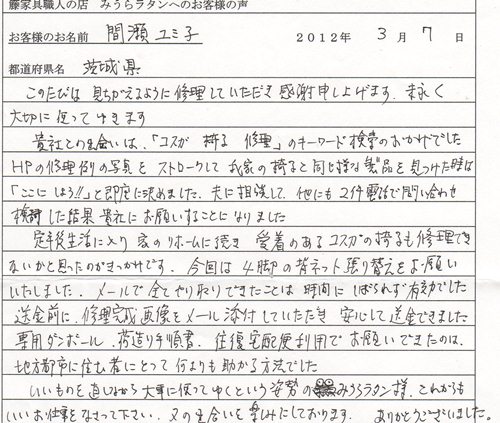 藤家具職人の店 みうらラタンへのお客様の声
お客様のお名前 間瀬 ユミ子 2012年 3月 7日
都道府県名 茨城県
このたびは 見ちがえるように修理していただき感謝申し上げます. 末永く
大切に使ってゆきます
貴社との出会いは、「コスガ 椅子 修理」のキーワード検索のおかげでした
HPの修理例の写真を ストロークして 我家の椅子と同じ様な製品を見つけた時は
「ここにしよう!!」と即座に決めました. 夫に相談して、他にも2件電話で問い合わせ
検討した結果 貴社にお願いすることになりました
定年後生活に入り 家のリホームに続き 愛着のあるコスガの椅子も修理でき
ないかと思ったのがきっかけです. 今回は 4脚の背ネット張り替えをお願い
いたしました. メールで全てやり取りできたことは 時間に しばられず有効でした
送金前に、修理完成画像をメール添付していただき 安心して送金できました
専用ダンボール. 荷造り手順書. 往復宅配便利用で お願いできたのは、
地方都市に住む者にとって 何よりも助かる方法でした
いいものを直しながら 大事に使ってゆくという姿勢のみうらラタン様. これからも
いいお仕事をなさって下さい. 又の出会いを楽しみにしております. ありがとうございました。